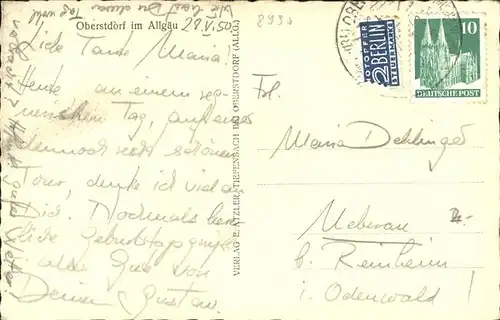 Oberstdorf im Allgäu
29.VI.50
8930
Liebe Tante Maria!
Heute an einem reg-
nerischen Tag, auf einer
dennoch recht schönen
Tour, denke ich viel an
Dich. Nochmals herz-
liche Geburtstagsgrüße
alles Gute von
Deinem Gustav.
VERLAG E. ATZLER, TIEFENBACH BEI OBERSTDORF (ALLG.)
NOTOPFER
2 BERLIN
STEUERMARKE
10
DEUTSCHE POST
Frl.
Maria Dehlinger
Ueberau
b. Reinheim
i. Odenwald!